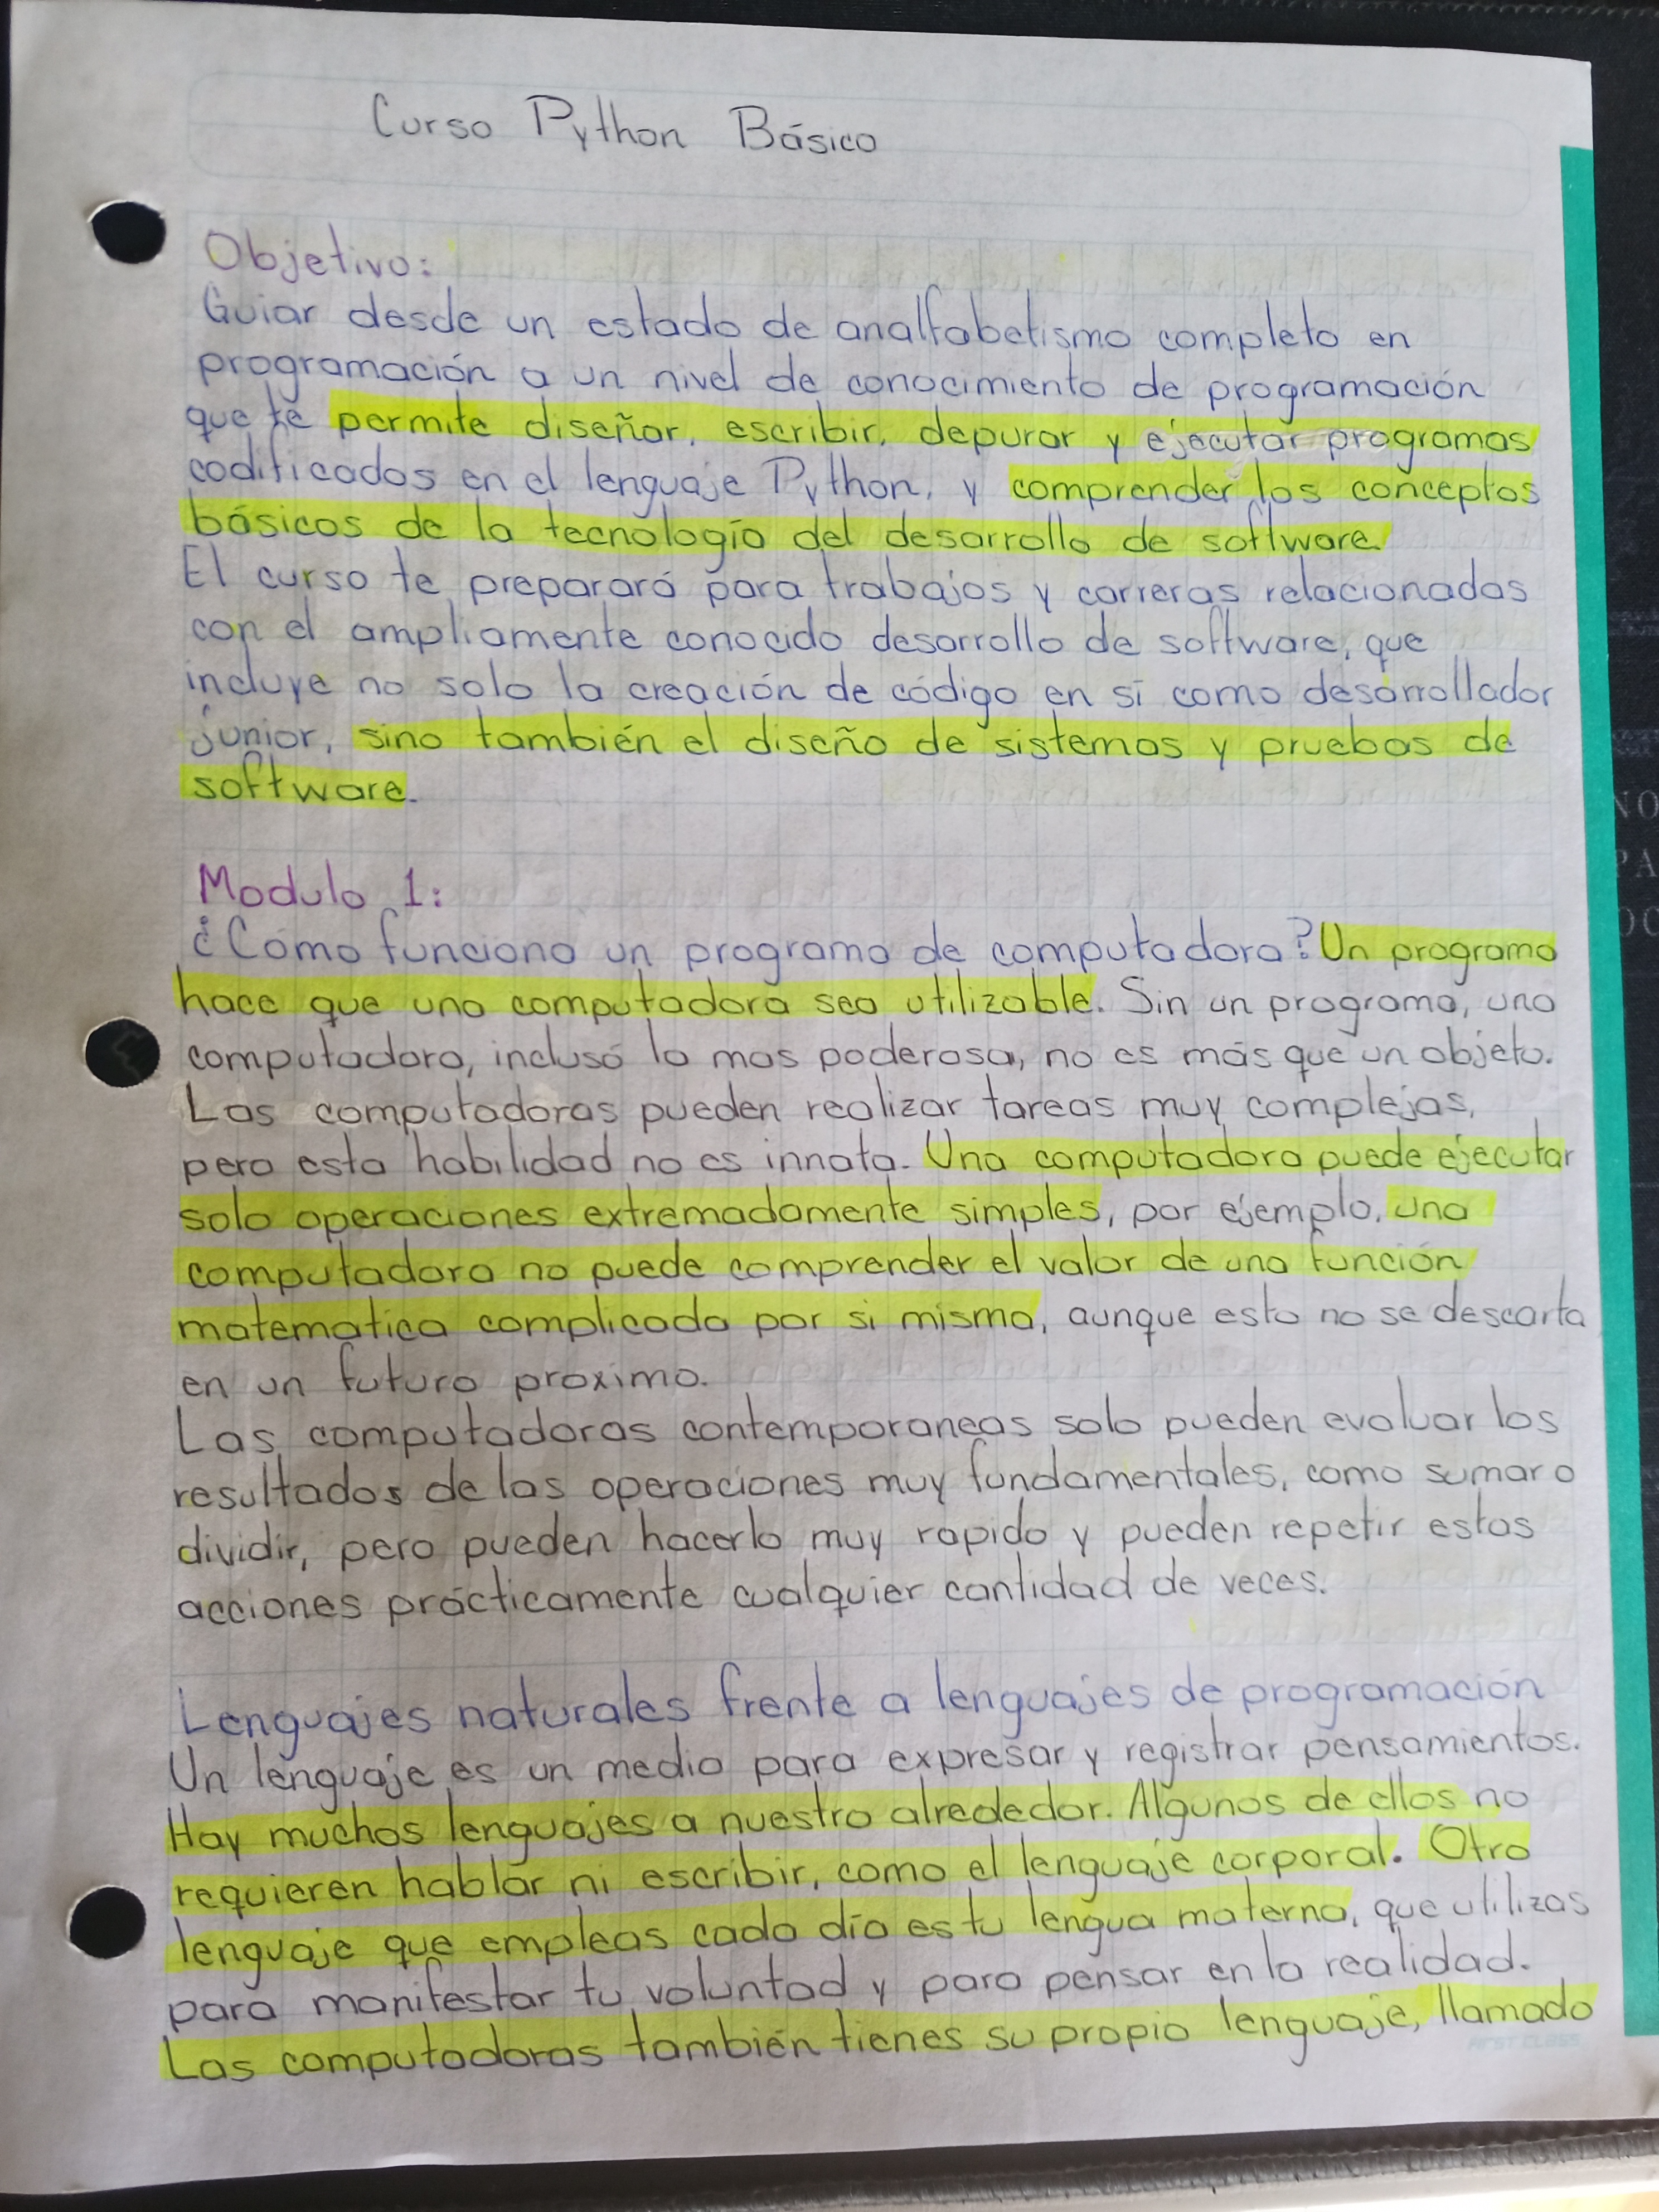 Curso Python Básico
Objetivo:
Guiar desde un estado de analfabetismo completo en
programación a un nivel de conocimiento de programación
que te permite diseñar, escribir, depurar y ejecutar programas
codificados en el lenguaje Python, y comprender los conceptos
básicos de la tecnología del desarrollo de software.
El curso te preparará para trabajos y carreras relacionadas
con el ampliamente conocido desarrollo de software, que
incluye no solo la creación de código en sí como desarrollador
junior, sino también el diseño de sistemas y pruebas de
software.
Modulo 1:
¿Cómo funciona un programa de computadora? Un programa
hace que una computadora sea utilizable. Sin un programa, una
computadora, inclusó la mas poderosa, no es más que un objeto.
Las computadoras pueden realizar tareas muy complejas,
pero esta habilidad no es innata. Una computadora puede ejecutar
solo operaciones extremadamente simples, por ejemplo, una
computadora no puede comprender el valor de una función
matematica complicada por si misma, aunque esto no se descarta
en un futuro proximo.
Las computadoras contemporaneas solo pueden evaluar los
resultados de las operaciones muy fundamentales, como sumar o
dividir, pero pueden hacerlo muy rapido y pueden repetir estas
acciones prácticamente cualquier cantidad de veces.
Lenguajes naturales frente a lenguajes de programación
Un lenguaje es un medio para expresar y registrar pensamientos.
Hay muchos lenguajes a nuestro alrededor. Algunos de ellos no
requieren hablar ni escribir, como el lenguaje corporal. Otro
lenguaje que empleas cada día es tu lengua materna, que utilizas
para manifestar tu voluntad y para pensar en la realidad.
Las computadoras también tienes su propio lenguaje, llamado